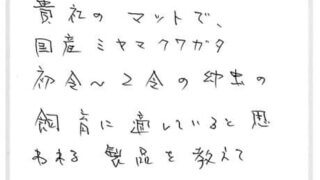 貴社のマットで、
国産ミヤマクワガタ
初令～2令の幼虫の
飼育に適していると思
われる製品を教えて